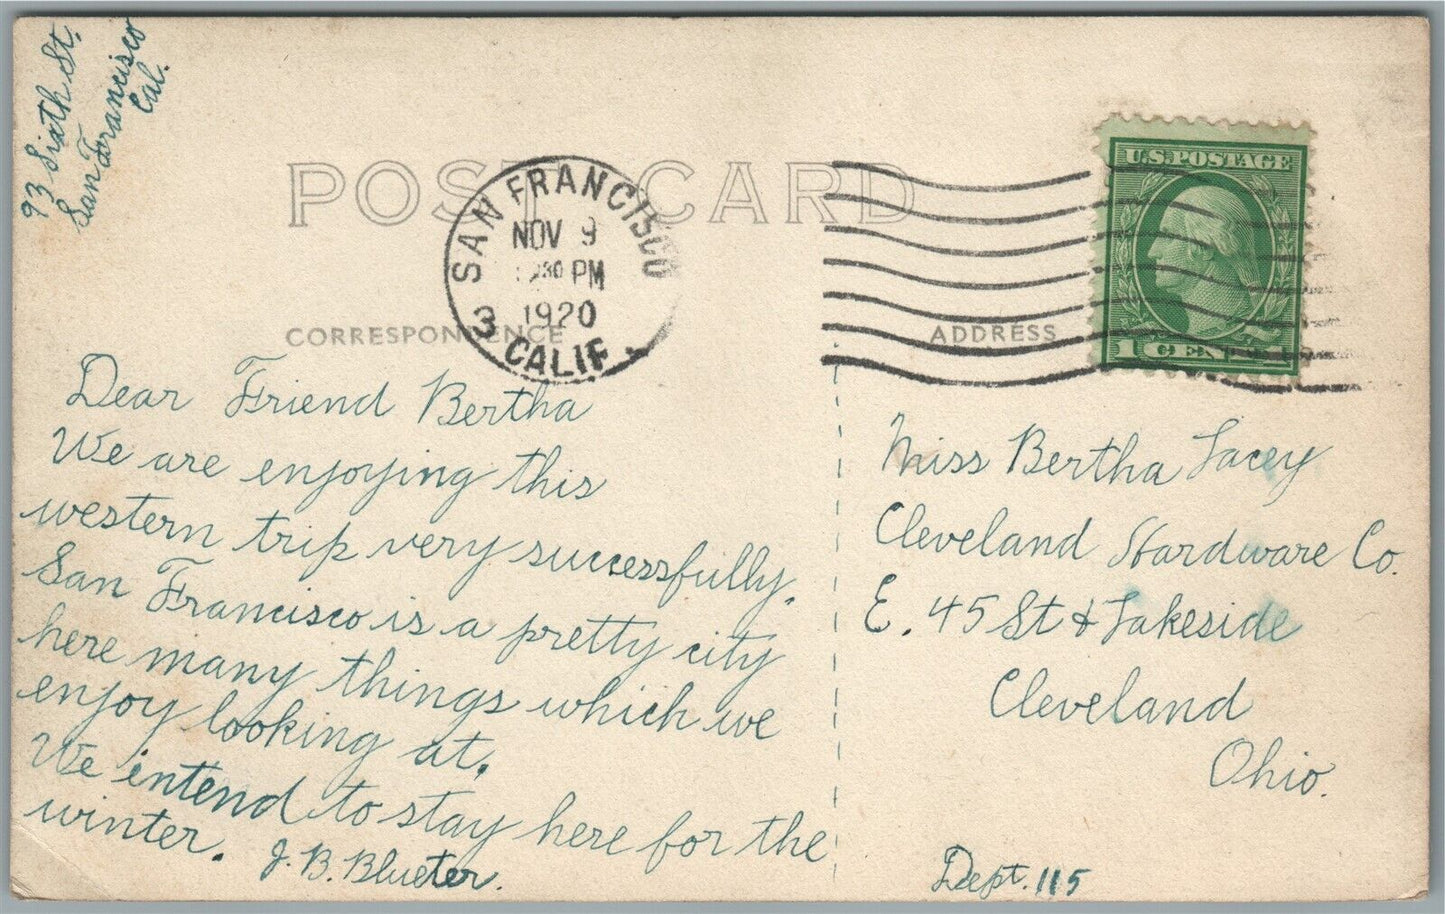 93 Sixth St,
San Francisco
Cal.
POST CARD
SAN FRANCISCO
NOV 9
30 PM
1920
3
CALIF.
U.S. POSTAGE
1 CENT 1
CORRESPONDENCE
ADDRESS
Dear Friend Bertha
We are enjoying this
western trip very successfully.
San Francisco is a pretty city
here many things which we
enjoy looking at.
We intend to stay here for the
winter. J. B. Blueter.
Miss Bertha Lacey
Cleveland Hardware Co.
E. 45 St & Lakeside
Cleveland
Ohio.
Dept. 115